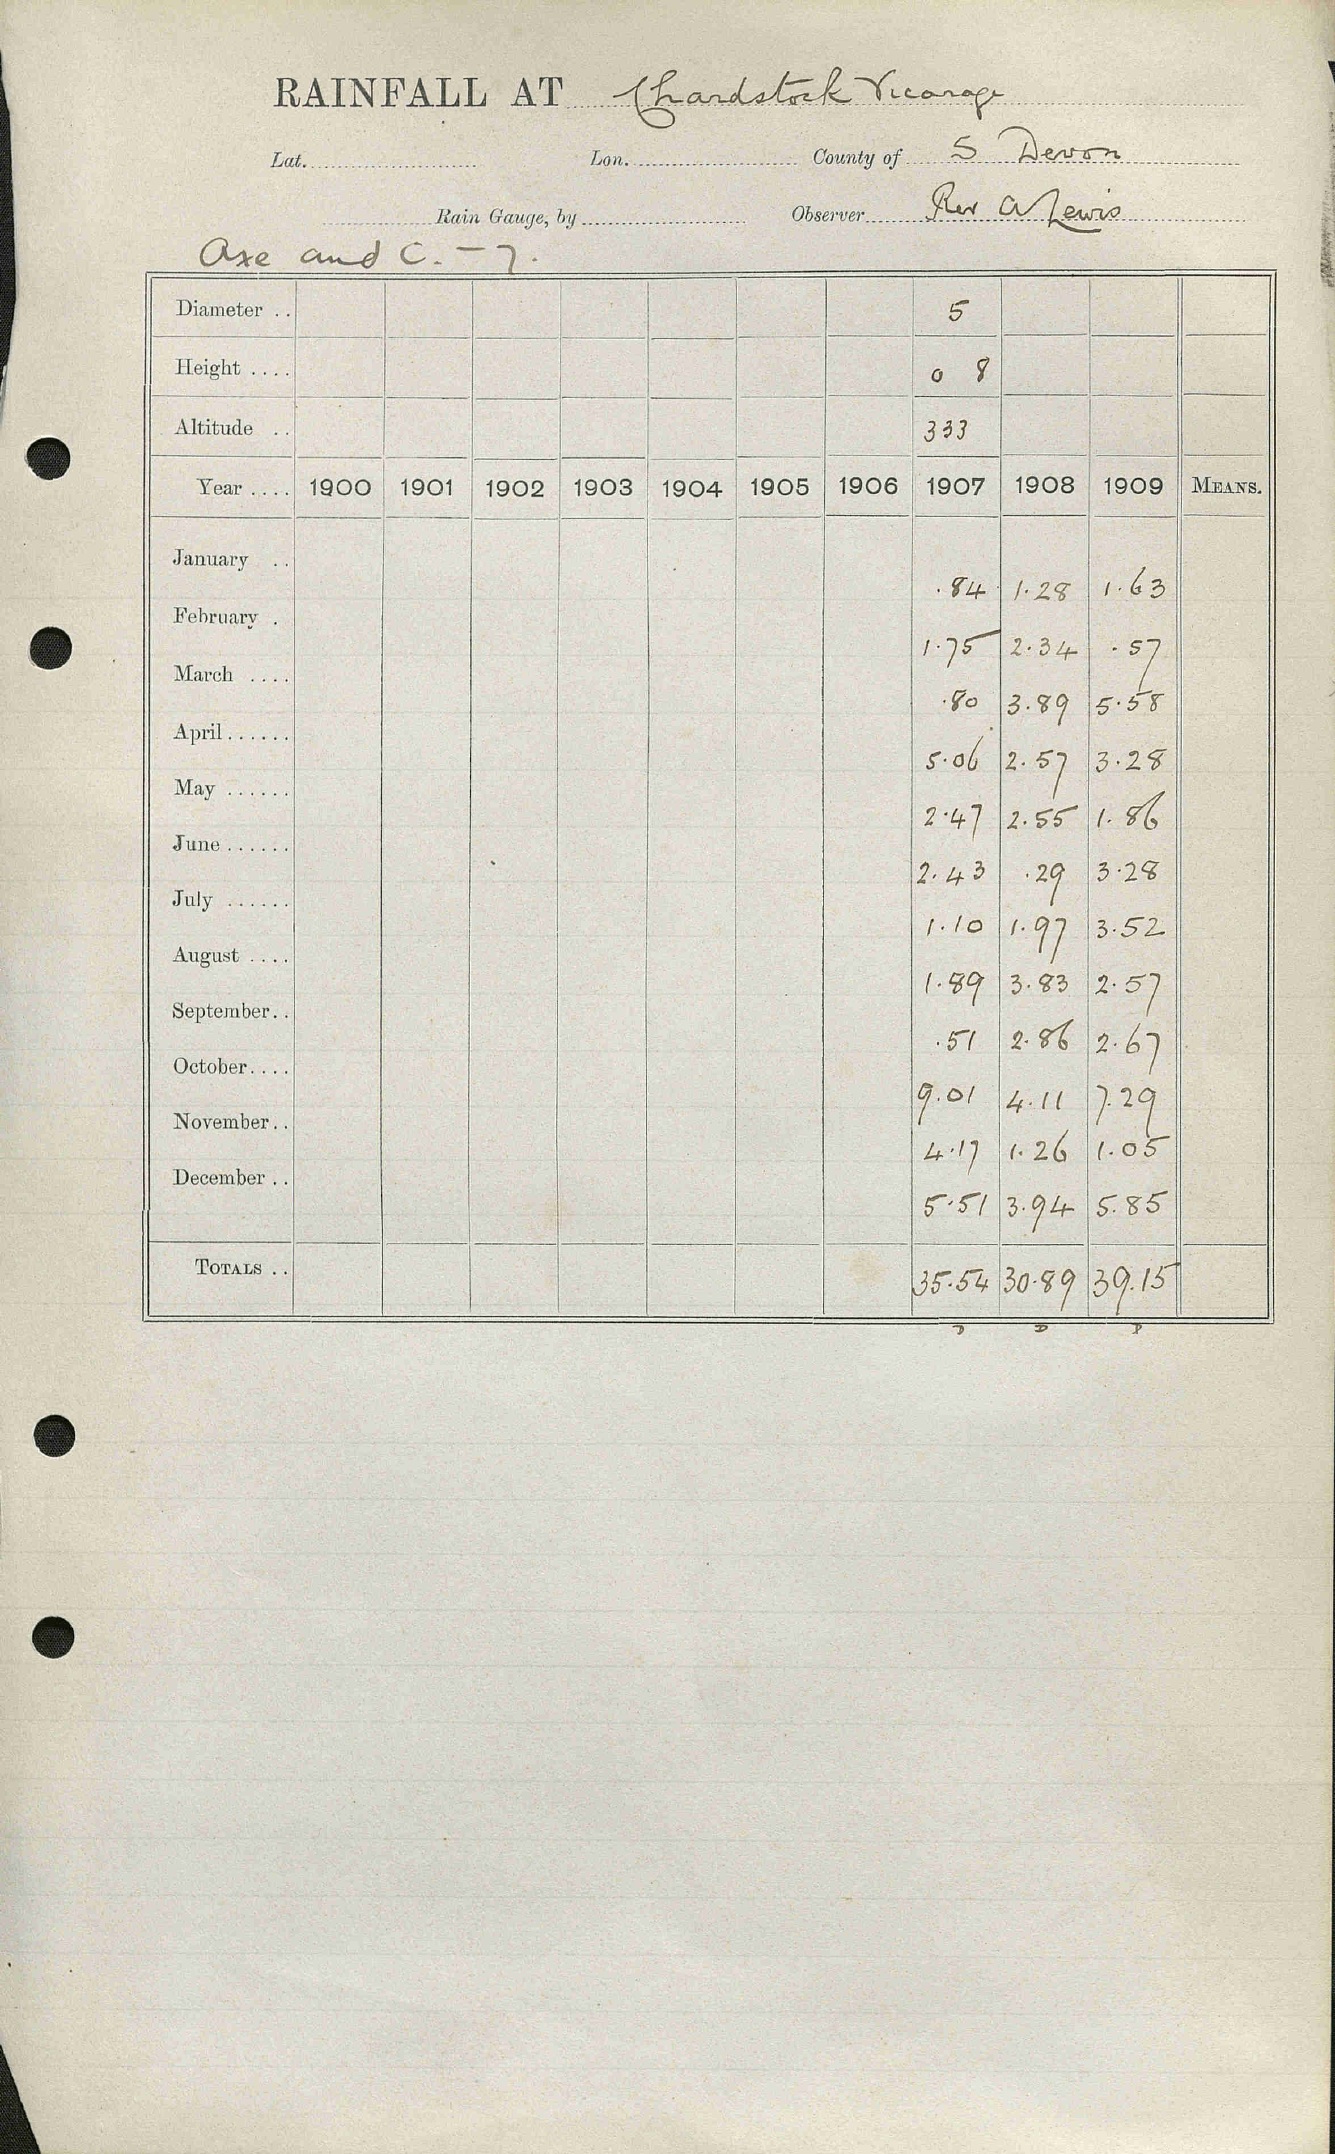 RAINFALL AT Chardstock Vicarage
Lat. Lon. County of S Devon
Rain Gauge, by Observer Rev A Lewis
Axe and C. – 7.
Diameter .. 5
Height .... 0 8
Altitude .. 333
Year .... 1900 1901 1902 1903 1904 1905 1906 1907 1908 1909 MEANS.
January .. .84 1.28 1.63
February . 1.75 2.34 .57
March .... .80 3.89 5.58
April ...... 5.06 2.57 3.28
May ...... 2.47 2.55 1.86
June ...... 2.43 .29 3.28
July ...... 1.10 1.97 3.52
August .... 1.89 3.83 2.57
September.. .51 2.86 2.67
October.... 9.01 4.11 7.29
November.. 4.17 1.26 1.05
December .. 5.51 3.94 5.85
TOTALS .. 35.54 30.89 39.15